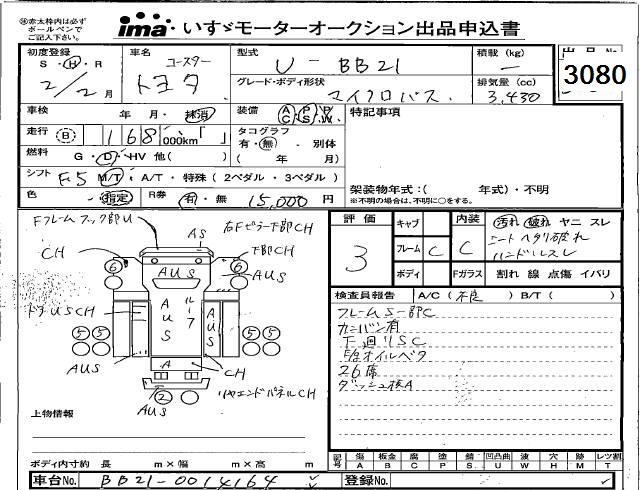 ※赤太枠内は必ず
ボールペンで
ご記入下さい。
ima いすゞモーターオークション出品申込書
初度登録 車名 コースター 型式 U-BB21 積載 (kg) - 出品No.
S・H・R 2/2月 トヨタ グレード・ボディ形状 マイクロバス 排気量 (cc) 3,430 3080
車検 年 月・抹消 装備 AC PS PW 特記事項
走行 B 168 000km「 」 タコグラフ 有・無・別体
燃料 G・D・HV 他( ) ( 年 月)
シフト F5 M/T・A/T・特殊 (2ペダル・3ペダル) 架装物年式:( 年式)・不明
※不明の場合は、不明に○をする。
色 指定 R券 有・無 15,000円
Fフレームフック部U
右Fピラー下部CH
AS
CH
下部CH
6
6
AUS
AUS
ドアUSCH
AUS
ルーフ
AUS
5 5
5 5
AUS
A
CH
2
AUS
リヤエンドパネルCH
上物情報
ボディ内寸約 長 m×幅 m×高 m
車台No. BB21-0014164
評価 キャブ 内装 汚れ 破れ ヤニ スレ
3 フレーム C C シートヘタリ破れ
ハンドルスレ
ボディ Fガラス 割れ 線 点傷 イバリ
検査員報告 A/C (不良) B/T ( )
フレームS一部C
カンバン有
下廻りSC
E/gオイルベタ
26席
ダッシュ板A
記号 傷 板金 腐 塗 錆 凹凸曲 波 穴 跡 レツ割
A B C P S U W H M T
登録No.